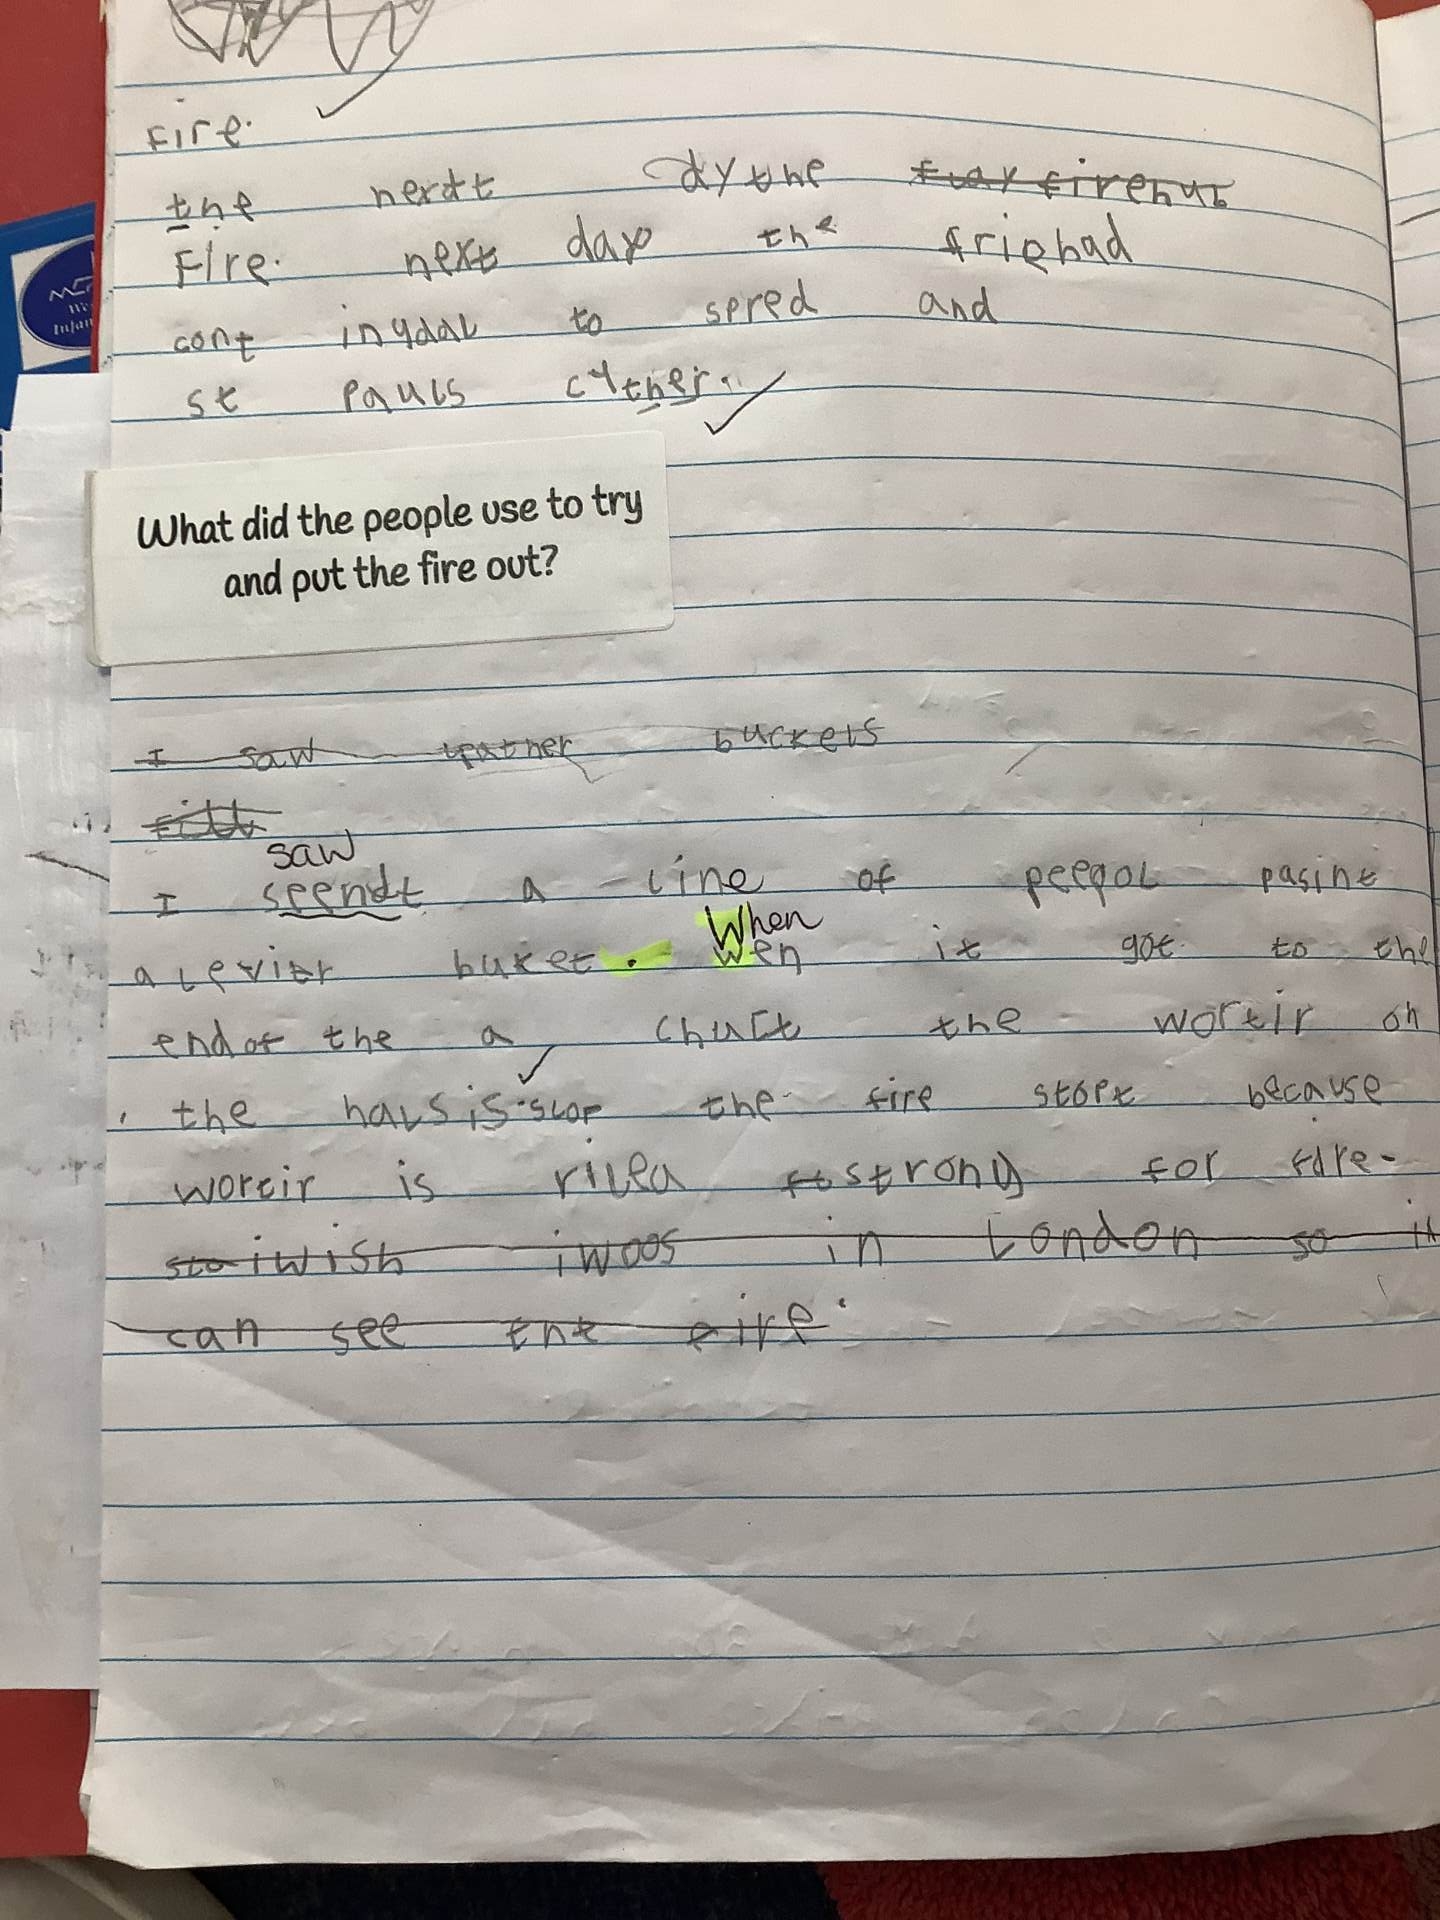 Fire.
the nerdt dy the fuay firehub
Fire. next day the friehad
cont inydal to spred and
st pauls cyther.
What did the people use to try
and put the fire out?
I saw leather buckets
saw
I seendt a line of peeqol pasint
When
a levier buket. wen it got to the
end of the a chuct the wortir on
the halsis. slop the fire stopt because
wortir is rilea strong for fire.
sto iwish iwoos in London so it
can see tht fire.